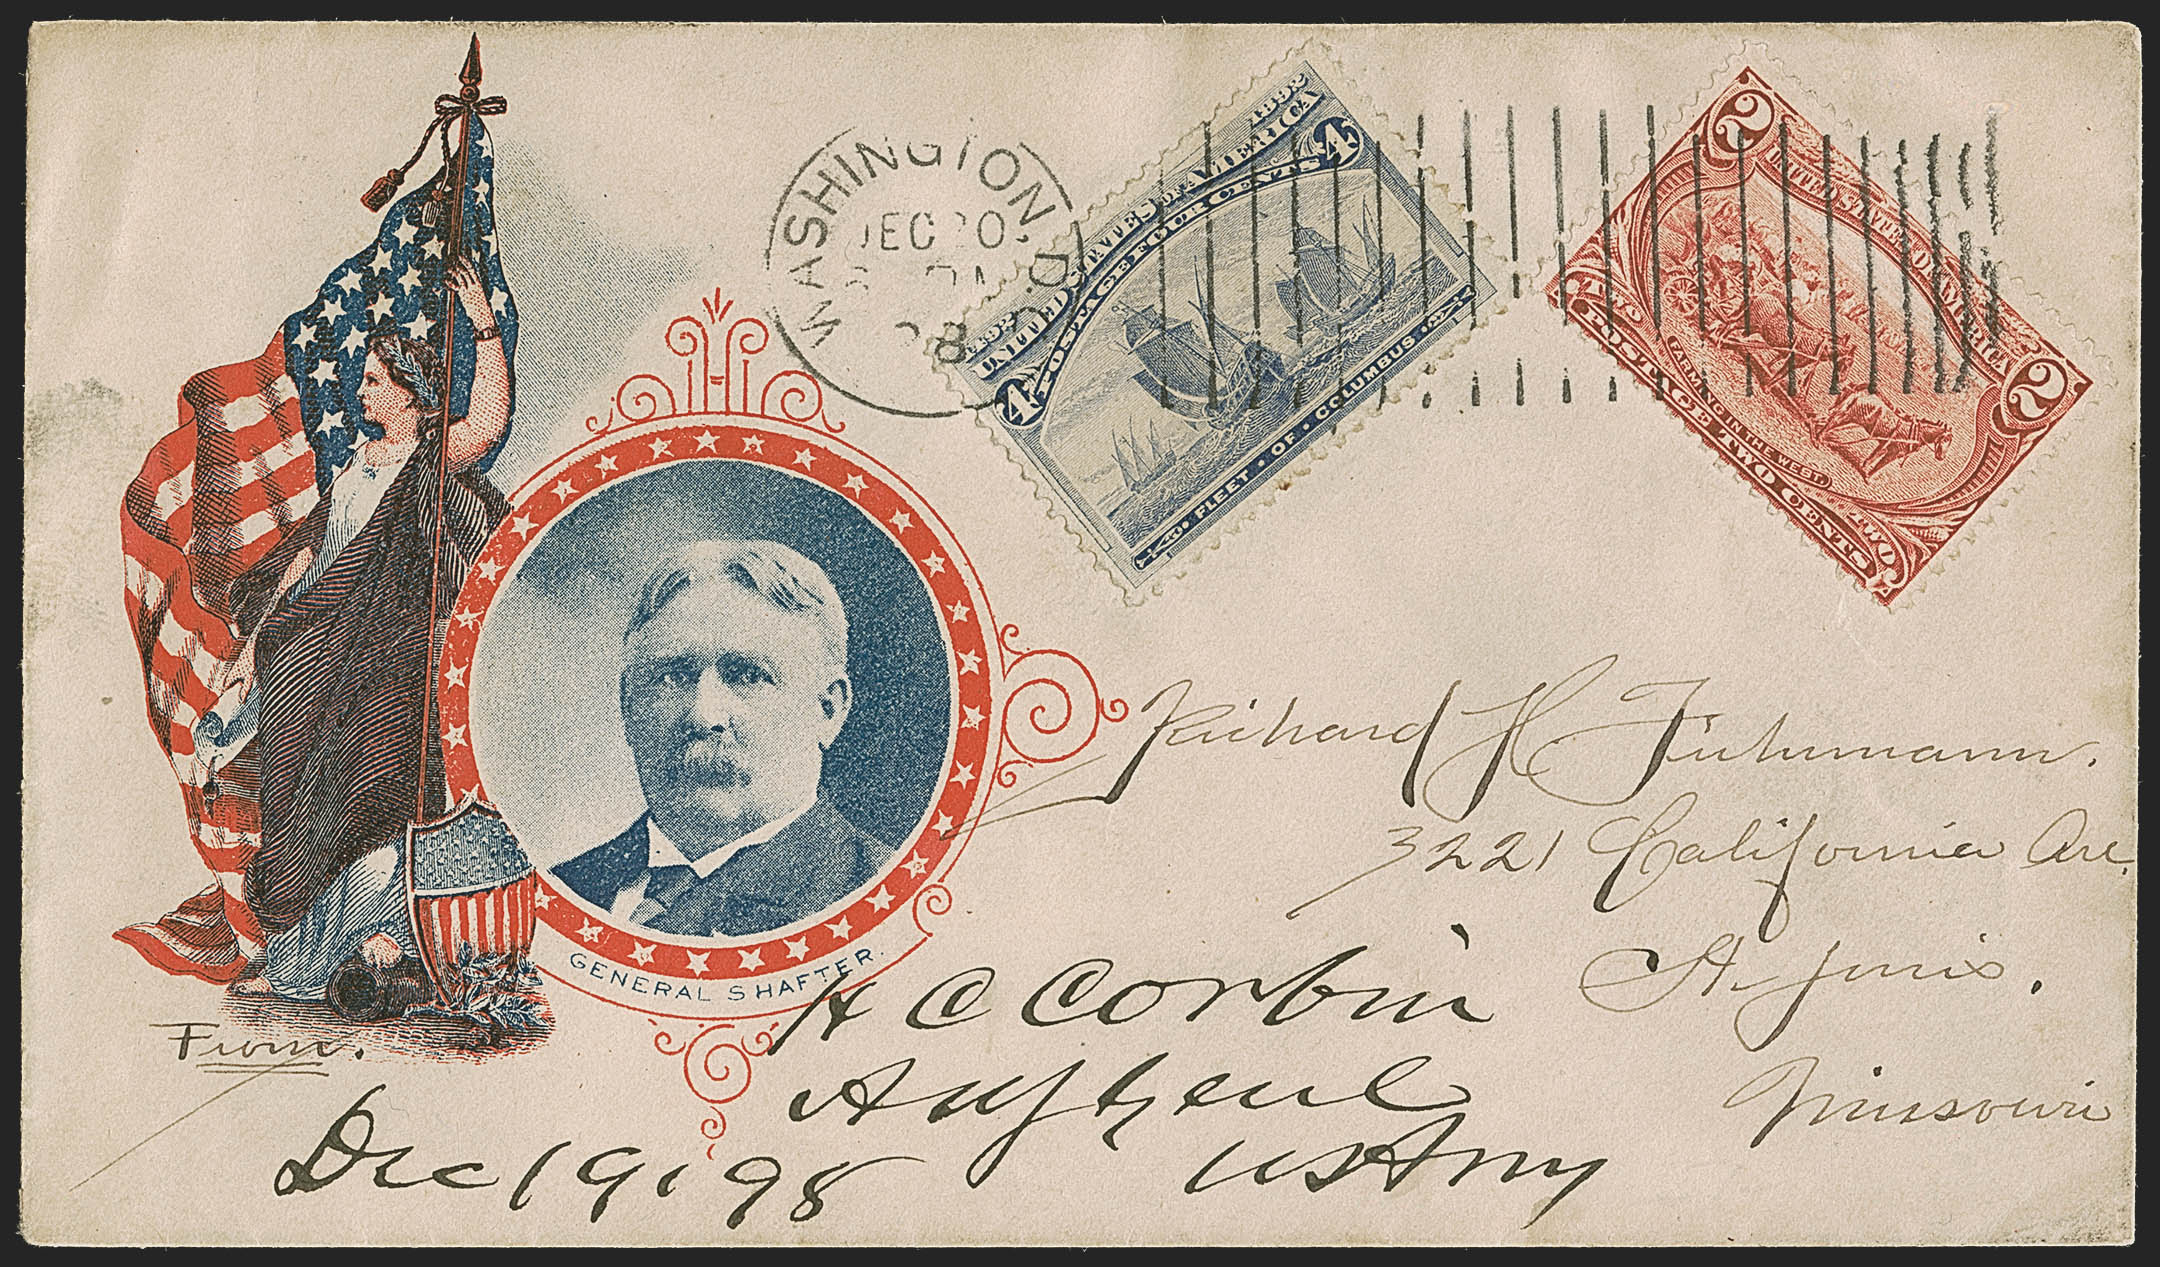 WASHINGTON D.C.
DEC 20
1492 1892
UNITED STATES OF AMERICA
POSTAGE FOUR CENTS
4 4
FLEET · OF · COLUMBUS
2 2
UNITED STATES OF AMERICA
FARMING IN THE WEST.
TWO TWO
POSTAGE TWO CENTS
GENERAL SHAFTER.
Richard H Fuhrmann.
3221 California Ave.
St. Louis.
Missouri
From.
H C Corbin
Adjt Genl
US Army
Dec 19, 98